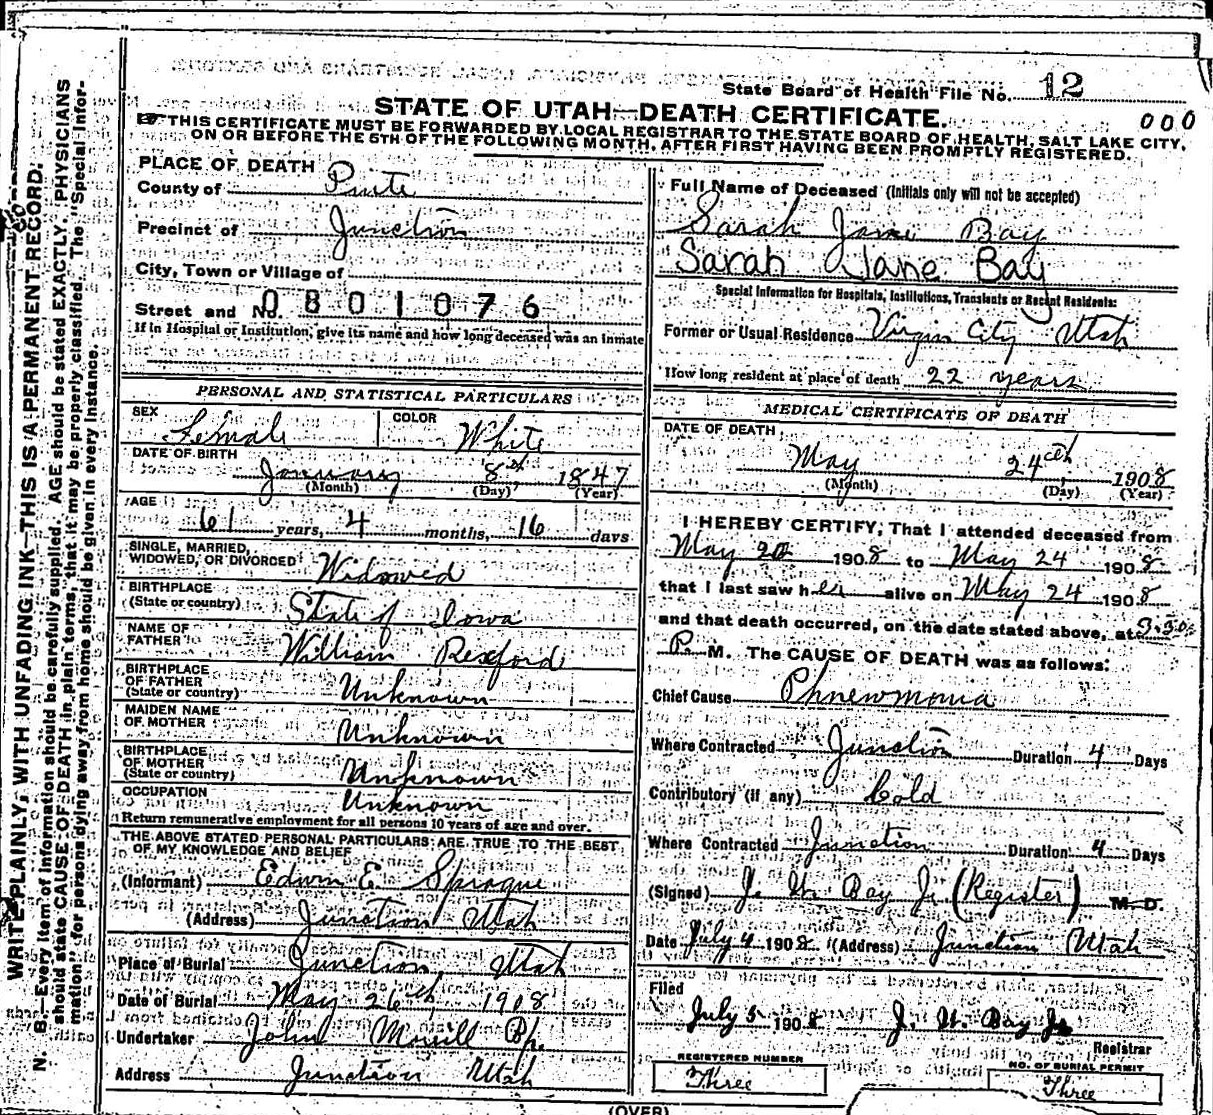 State Board of Health File No. 12
STATE OF UTAH—DEATH CERTIFICATE.
000
THIS CERTIFICATE MUST BE FORWARDED BY LOCAL REGISTRAR TO THE STATE BOARD OF HEALTH, SALT LAKE CITY,
ON OR BEFORE THE 5TH OF THE FOLLOWING MONTH, AFTER FIRST HAVING BEEN PROMPTLY REGISTERED.
WRITE PLAINLY, WITH UNFADING INK—THIS IS A PERMANENT RECORD.
N. B.—Every item of information should be carefully supplied. AGE should be stated EXACTLY. PHYSICIANS
should state CAUSE OF DEATH in plain terms, that it may be properly classified. The "Special Infor-
mation" for persons dying away from home should be given in every instance.
PLACE OF DEATH
County of Piute
Precinct of Junction
City, Town or Village of
Street and No. 0801076
If in Hospital or Institution, give its name and how long deceased was an Inmate
PERSONAL AND STATISTICAL PARTICULARS
SEX Female COLOR White
DATE OF BIRTH
January 8th 1847
(Month) (Day) (Year)
AGE
61 years, 4 months, 16 days
SINGLE, MARRIED,
WIDOWED, OR DIVORCED Widowed
BIRTHPLACE
(State or country) State of Iowa
NAME OF
FATHER William Rexford
BIRTHPLACE
OF FATHER
(State or country) Unknown
MAIDEN NAME
OF MOTHER Unknown
BIRTHPLACE
OF MOTHER
(State or country) Unknown
OCCUPATION Unknown
Return remunerative employment for all persons 10 years of age and over.
THE ABOVE STATED PERSONAL PARTICULARS ARE TRUE TO THE BEST
OF MY KNOWLEDGE AND BELIEF
(Informant) Edwin E. Sprague
(Address) Junction Utah
Place of Burial Junction, Utah
Date of Burial May 26th, 1908
Undertaker John Morrill Bp.
Address Junction Utah
Full Name of Deceased (Initials only will not be accepted)
Sarah Jane Bay
Sarah Jane Bay
Special Information for Hospitals, Institutions, Transients or Recent Residents:
Former or Usual Residence Virgin City Utah
How long resident at place of death 22 years
MEDICAL CERTIFICATE OF DEATH
DATE OF DEATH
May 24th 1908
(Month) (Day) (Year)
I HEREBY CERTIFY, That I attended deceased from
May 20 1908 to May 24 1908
that I last saw her alive on May 24 1908
and that death occurred, on the date stated above, at 3-30
P. M. The CAUSE OF DEATH was as follows:
Chief Cause Phnewmonia
Where Contracted Junction Duration 4 Days
Contributory (if any) Cold
Where Contracted Junction Duration 4 Days
(Signed) J. H. Bay Jr (Register) M. D.
Date July 4 1908 (Address) Junction Utah
Filed
July 5 1908 J. H. Bay Jr
Registrar
REGISTERED NUMBER
Three
NO. OF BURIAL PERMIT
Three
(OVER)